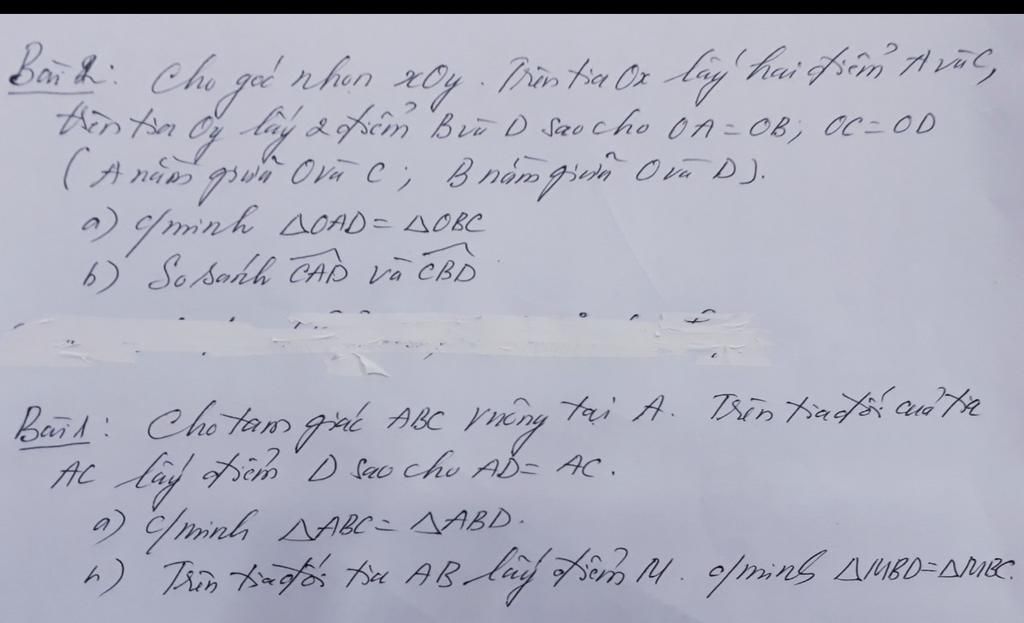 Bài 2: Cho góc nhọn xOy. Trên tia Ox lấy hai điểm A và C,
trên tia Oy lấy 2 điểm B và D sao cho OA = OB; OC = OD
(A nằm giữa O và C; B nằm giữa O và D).
a) c/minh ΔOAD = ΔOBC
b) So sánh \widehat{CAD} và \widehat{CBD}
Bài 1: Cho tam giác ABC vuông tại A. Trên tia đối của tia
AC lấy điểm D sao cho AD = AC.
a) c/minh ΔABC = ΔABD.
b) Trên tia đối tia AB lấy điểm M. c/minh ΔMBD = ΔMBC.